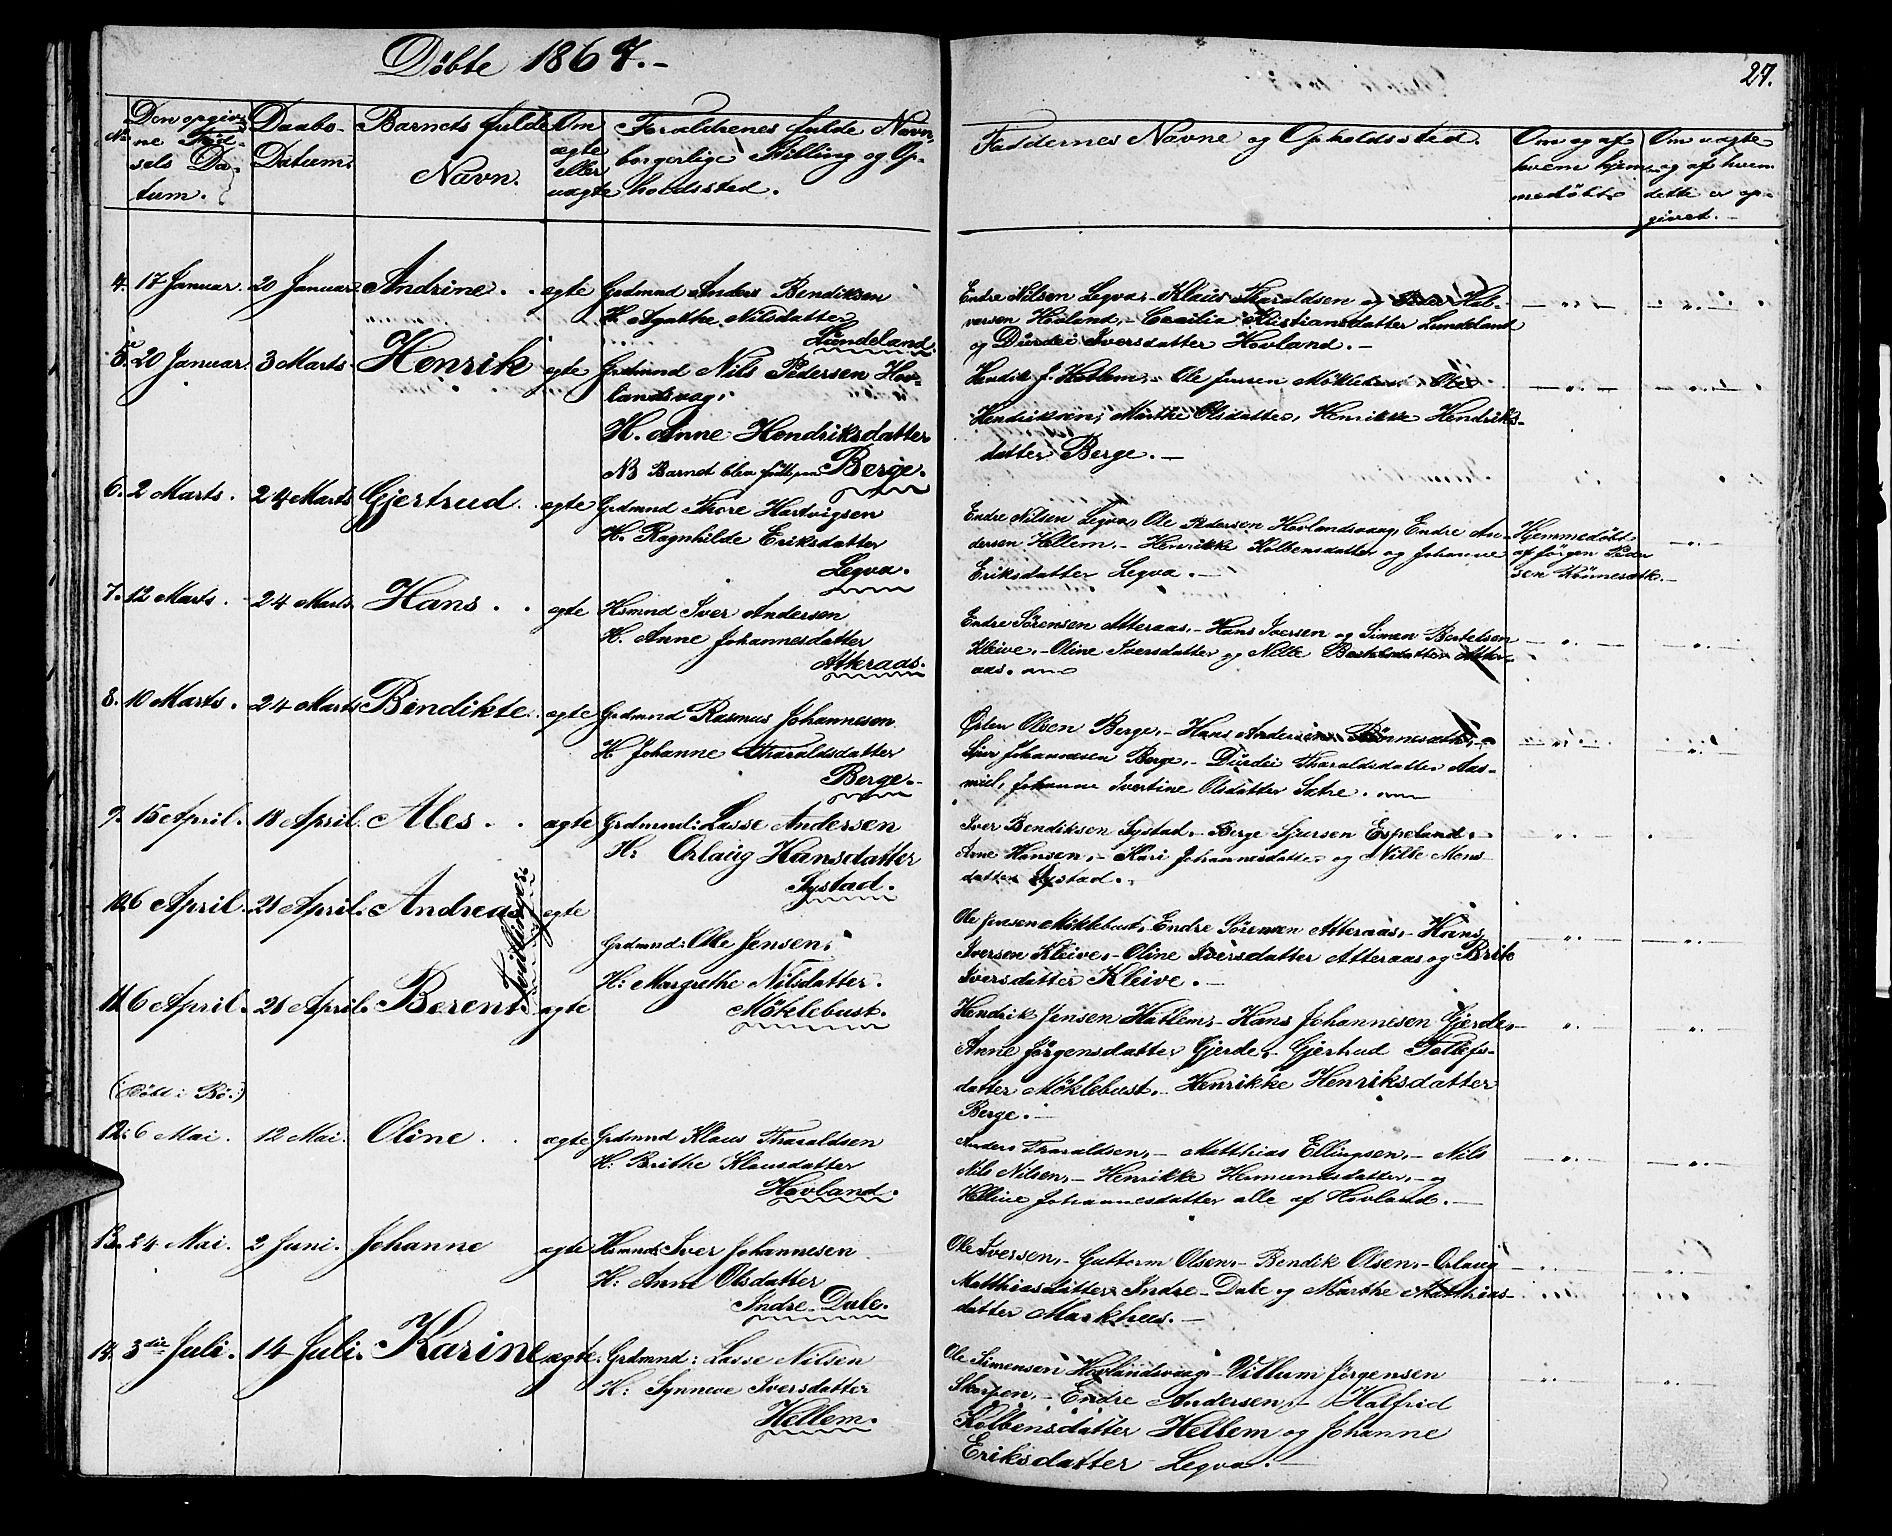 Döbte 1867.-
27.
No
Den opgiv-
ne Föd-
sels Da-
tum.
Daabs-
Datum.
Barnets fulde
Navn.
Om
ægte
eller
uægte
Forældrenes fulde Navn,
borgerlige Stilling og Op-
holdssted.
Faddernes Navne og Opholdssted.
Om og af
hvem hjem-
medöbt
Om uægte
og af hvem
dette er op-
givet.-
4. 17 Januar. 20 Januar Andrine. . ægte Grdmnd Anders Bendiksen
H. Agathe Nilsdatter
Lundeland.
Endre Nilsen Legva,- Klaus Tharaldsen og Peder Hal-
varsen Hovland,- Cecilia Kristiansdatter Lundeland
og Durdei Iversdatter Hovland.-
5. 20 Januar. 3 Marts. Henrik ægte Grdmnd Nils Pedersen Hov-
landsvag,
H. Anne Hendriksdatter
NB Barnet blev födt paa Berge.
Hendik J. Hatlem,- Ole Jensen Möklebust Ole
Hendriksen, Marthe Olsdatter, Henrikke Hendriks-
datter Berge.-
6. 2 Marts. 24 Marts Gjertrud. . ægte Grdmnd Thore Hartvigsen
H. Ragnhilde Eriksdatter
Legva.
Endre Nilsen Legva, Ole Pedersen Hovlandsvaag, Endre An-
dersen Hellem,- Henrikke Kolbensdatter og Johanne
Eriksdatter Legva.-
Hjemmedöbt
af Jörgen Peder
sen Rönnesæth.-
7. 12 Marts. - 24 Marts Hans. . . ægte Hsmnd Iver Andersen
H. Anne Johannesdatter
Atteraas.
Endre Sörensen Atteraas,- Hans Iversen og Simen Bertelsen
Kleive,- Oline Iversdatter og Nille Bertelsdatter Atter-
aas.
8. 10 Marts. 24 Marts Bendikte. . ægte Grdmnd Rasmus Johannesen
H Johanne Tharaldsdatter
Berge.-
Östen Olsen Berge,- Hans Andersen Rönnesæth,-
Sjur Johannesen Berge,- Durdei Tharaldsdatter Aas-
miel, Johanne Ivertine Olsdatter Sætre.
9. 15 April. 18 April. Ales. . ægte Grdmnd: Lasse Andersen
H: Orlaug Hansdatter
Systad.
Iver Bendiksen Systad,- Berge Sjursen Espeland.-
Arne Hansen,- Kari Johannesdatter og Nille Mons-
datter Systad.
10. 6 April. 21 April. Andreas ægte
Tvillinger:
Grdmnd: Ole Jensen,
H: Margrethe Nilsdatter.
Möklebust.
Ole Jensen Möklebust,- Endre Sörensen Atteraas,- Hans
Iversen Kleive,- Oline Iversdatter Atteraas og Brite
Iversdatter Kleive.-
11. 6 April. 21 April. Berent. ægte
Hendrik Jensen Hatlem,- Hans Johannesen Gjerde,-
Anne Jörgensdatter Gjerde,- Gjertrud Tollefs-
datter Möklebust,- Henrikke Henriksdatter
Berge.-
(Döbt i Bö.)
12. 6 Mai. 12 Mai. Oline . . ægte Grdmnd Klaus Tharaldsen
H. Brithe Klausdatter
Hovland.
Anders Tharaldsen,- Matthias Ellingsen,- Nils
Nils Nilsen,- Henrikke Hermundsdatter,- og
Helline Johannesdatter alle af Hovland.-
13. 24 Mai. 2 Juni. Johanne ægte Hsmnd: Iver Johannesen
H: Anne Olsdatter
Indre-Dale.
Ole Iversen,- Guttorm Olsen,- Bendik Olsen,- Orlaug
Matthiasdatter Indre-Dale og Marthe Matthias-
datter Markhus.-
14. 3die Juli. 14 Juli. Karine ægte. Grdmnd: Lasse Nilsen
H: Synneve Iversdatter
Hellem.
Ole Simensen Hovlandsvaag,- Villum Jörgensen
Skorpen,- Endre Andersen,- Halfrid
Kolbensdatter Hellem og Johanne
Eriksdatter Legva.-